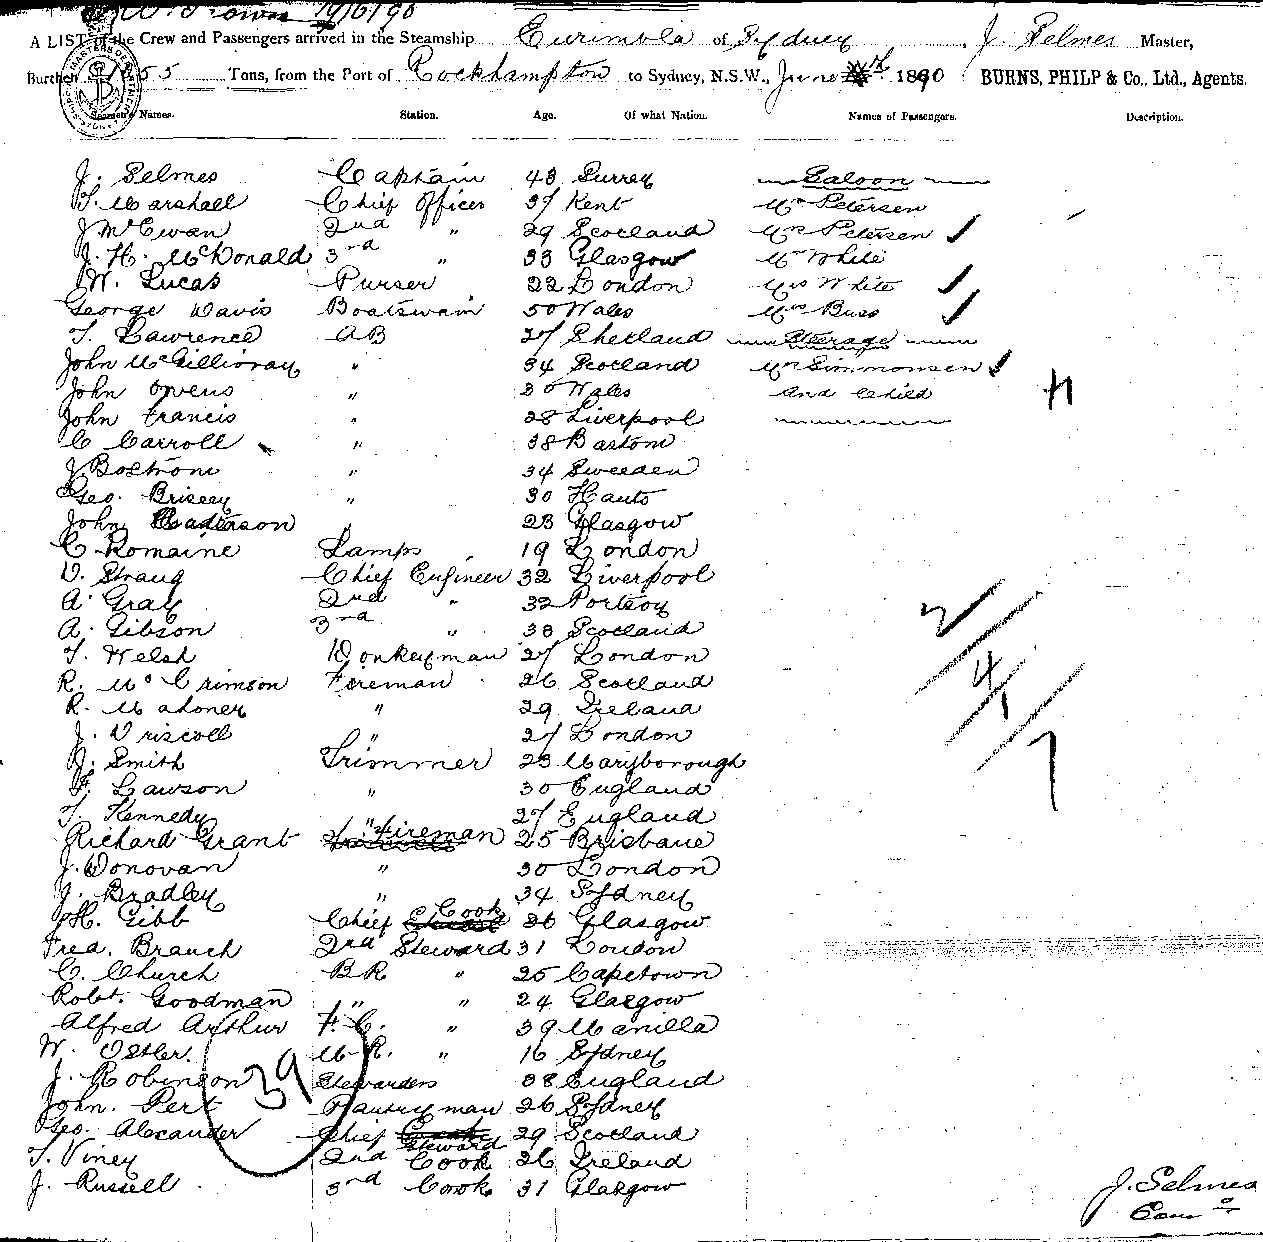 W. Brown 14/6/90
A LIST of the Crew and Passengers arrived in the Steamship Eurimbla of Sydney, J. Selmes Master,
Burthen 1055 Tons, from the Port of Rockhampton to Sydney, N.S.W., June 1890 BURNS, PHILP & Co., Ltd., Agents.
Seamen's Names. Station. Age. Of what Nation. Names of Passengers. Description.
J. Selmes Captain 43 Surrey Saloon
T. Marshall Chief Officer 37 Kent Mr Petersen
J McEwan 2nd " 29 Scotland Mrs Petersen
J. H. McDonald 3rd " 33 Glasgow Mr White
W. Lucas Purser 22 London Mrs White
George Davis Boatswain 50 Wales Mrs Buss
T. Lawrence AB 27 Shetland Steerage
John McGillivray " 34 Scotland Mrs Simmonsen
John Owens " 30 Wales and Child
John Francis " 28 Liverpool
C Carroll " 38 Bastom
J Bostrom " 34 Sweeden
Geo. Briscey " 30 Hants
John 23 Glasgow
C Romaine Lamps 19 London
D. Strang Chief Engineer 32 Liverpool
A. Gray 2nd " 32 Portsoy
A. Gibson 3rd " 38 Scotland
T. Welsh Donkeyman 27 London
R. McCrimson Foreman 26 Scotland
R. Mahoney " 29 Ireland
J. Driscoll " 27 London
J. Smith Trimmer 23 Maryborough
F. Lawson " 30 England
T. Kennedy " 27 England
Richard Grant Fireman 25 Brisbane
J. Donovan " 30 London
J. Bradley " 34 Sydney
H. Gibb Chief Cook 36 Glasgow
Fred. Branch 2nd Steward 31 London
C. Church BR " 25 Capetown
Robt. Goodman " " 24 Glasgow
Alfred Arthur F.C. " 39 Manilla
W. Ostler. M.R. " 16 Sydney
J. Robinson Stewardess 38 England
John. Pert Pantryman 26 Sydney
Geo. Alexander Chief Steward 29 Scotland
T. Viney 2nd Cook 26 Ireland
J. Russell 3rd Cook 31 Glasgow
39
2/4/7
J. Selmes